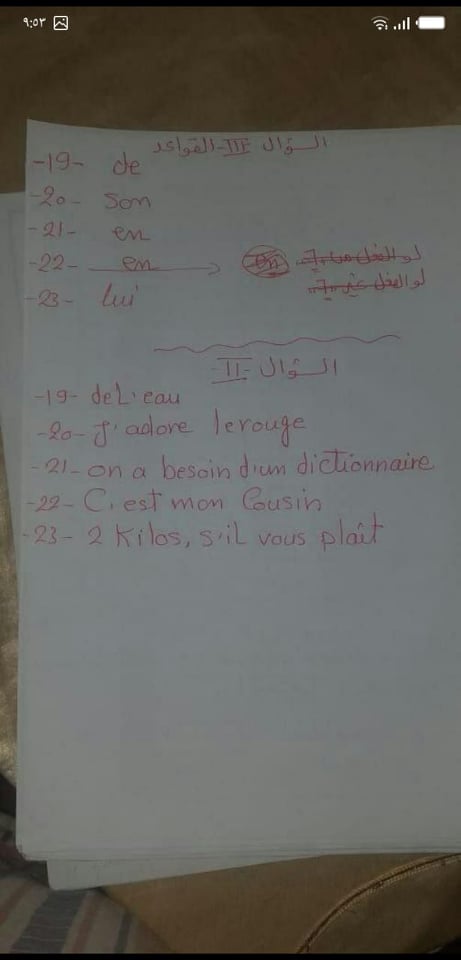 ٩:٥٣
السؤال III - القواعد
-19- de
-20- son
-21- en
-22- en
-23- lui
السؤال -II-
-19- de L'eau
-20- J'adore le rouge
-21- on a besoin d'un dictionnaire
-22- C'est mon Cousin
-23- 2 Kilos, s'il vous plaît